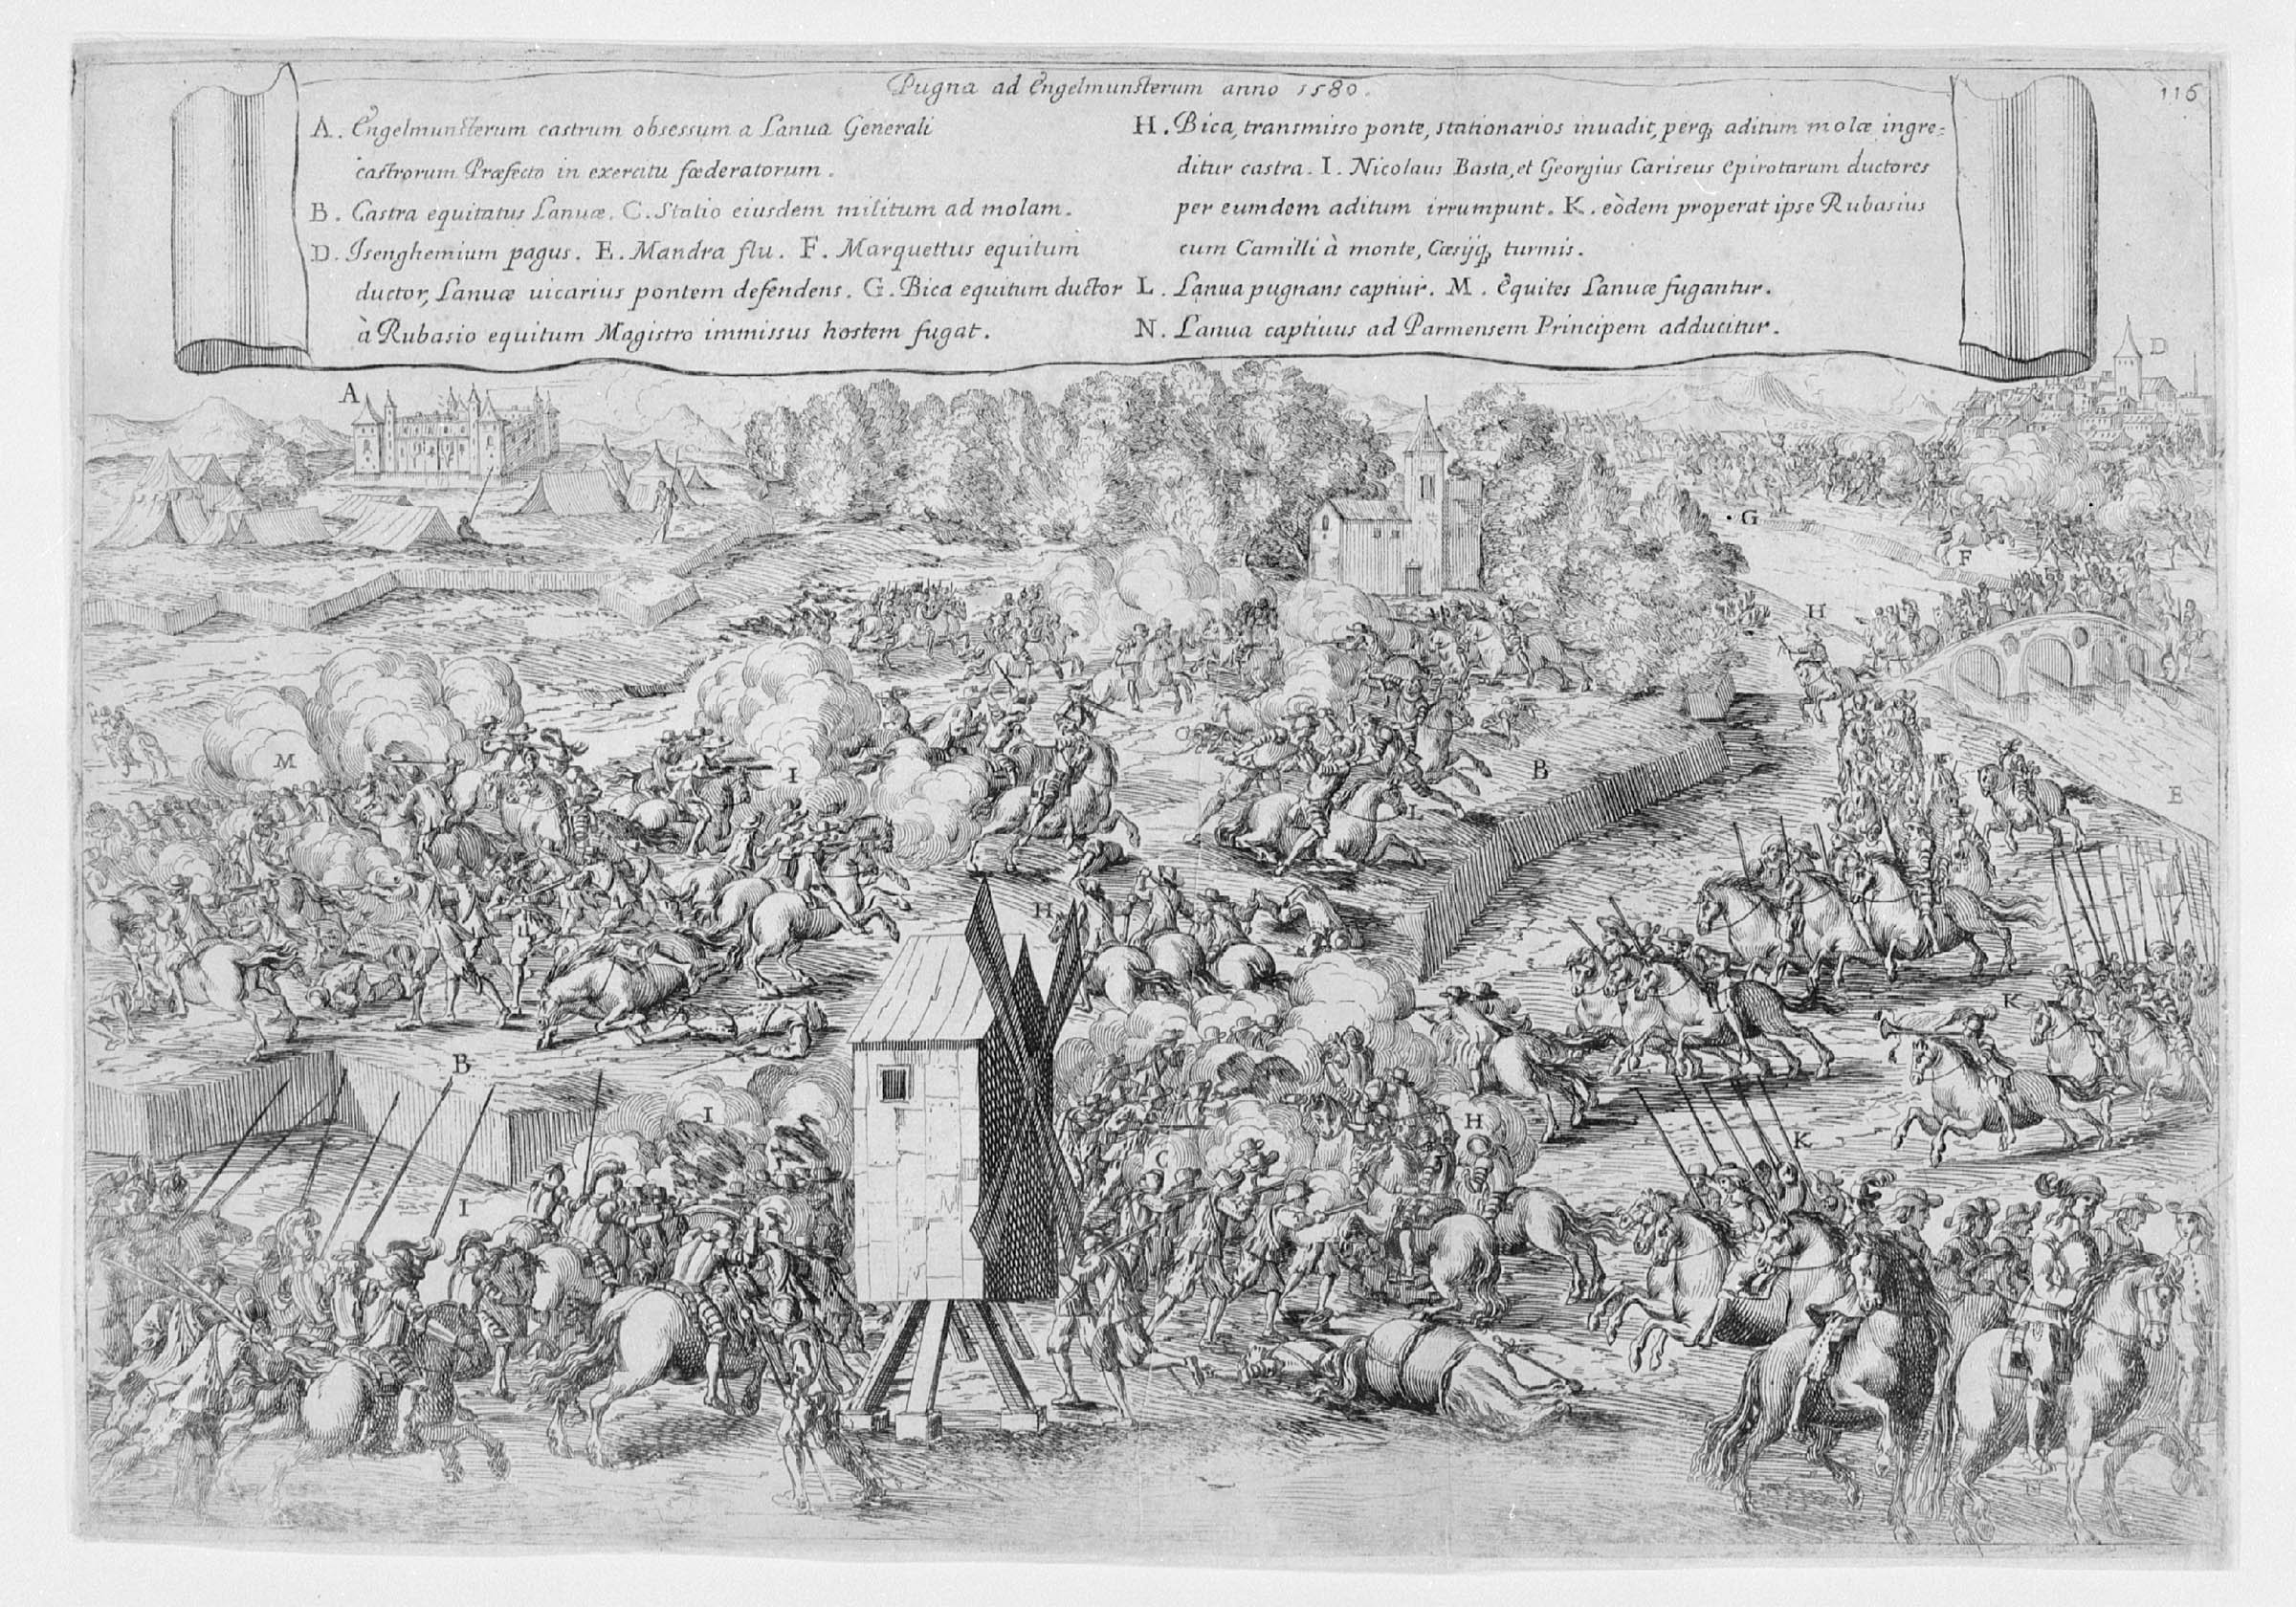 Pugna ad Engelmunsterum anno 1580.
116
A. Engelmunsterum castrum obsessum a Lanua Generali
castrorum Præfecto in exercitu fœderatorum.
B. Castra equitatus Lanuæ. C. Statio eiusdem militum ad molam.
D. Isenghemium pagus. E. Mandra flu. F. Marquettus equitum
ductor, Lanuæ uicarius pontem defendens. G. Bica equitum ductor
à Rubasio equitum Magistro immissus hostem fugat.
H. Bica, transmisso ponte, stationarios inuadit, perq; aditum molæ ingre:
ditur castra. I. Nicolaus Basta, et Georgius Cariseus Epirotarum ductores
per eumdem aditum irrumpunt. K. eòdem properat ipse Rubasius
cum Camilli à monte, Cæsijq; turmis.
L. Lanua pugnans capitur. M. Equites Lanuæ fugantur.
N. Lanua captiuus ad Parmensem Principem adducitur.
A
D
G
F
H
M
I
B
L
E
H
K
B
I
H
C
K
I
N